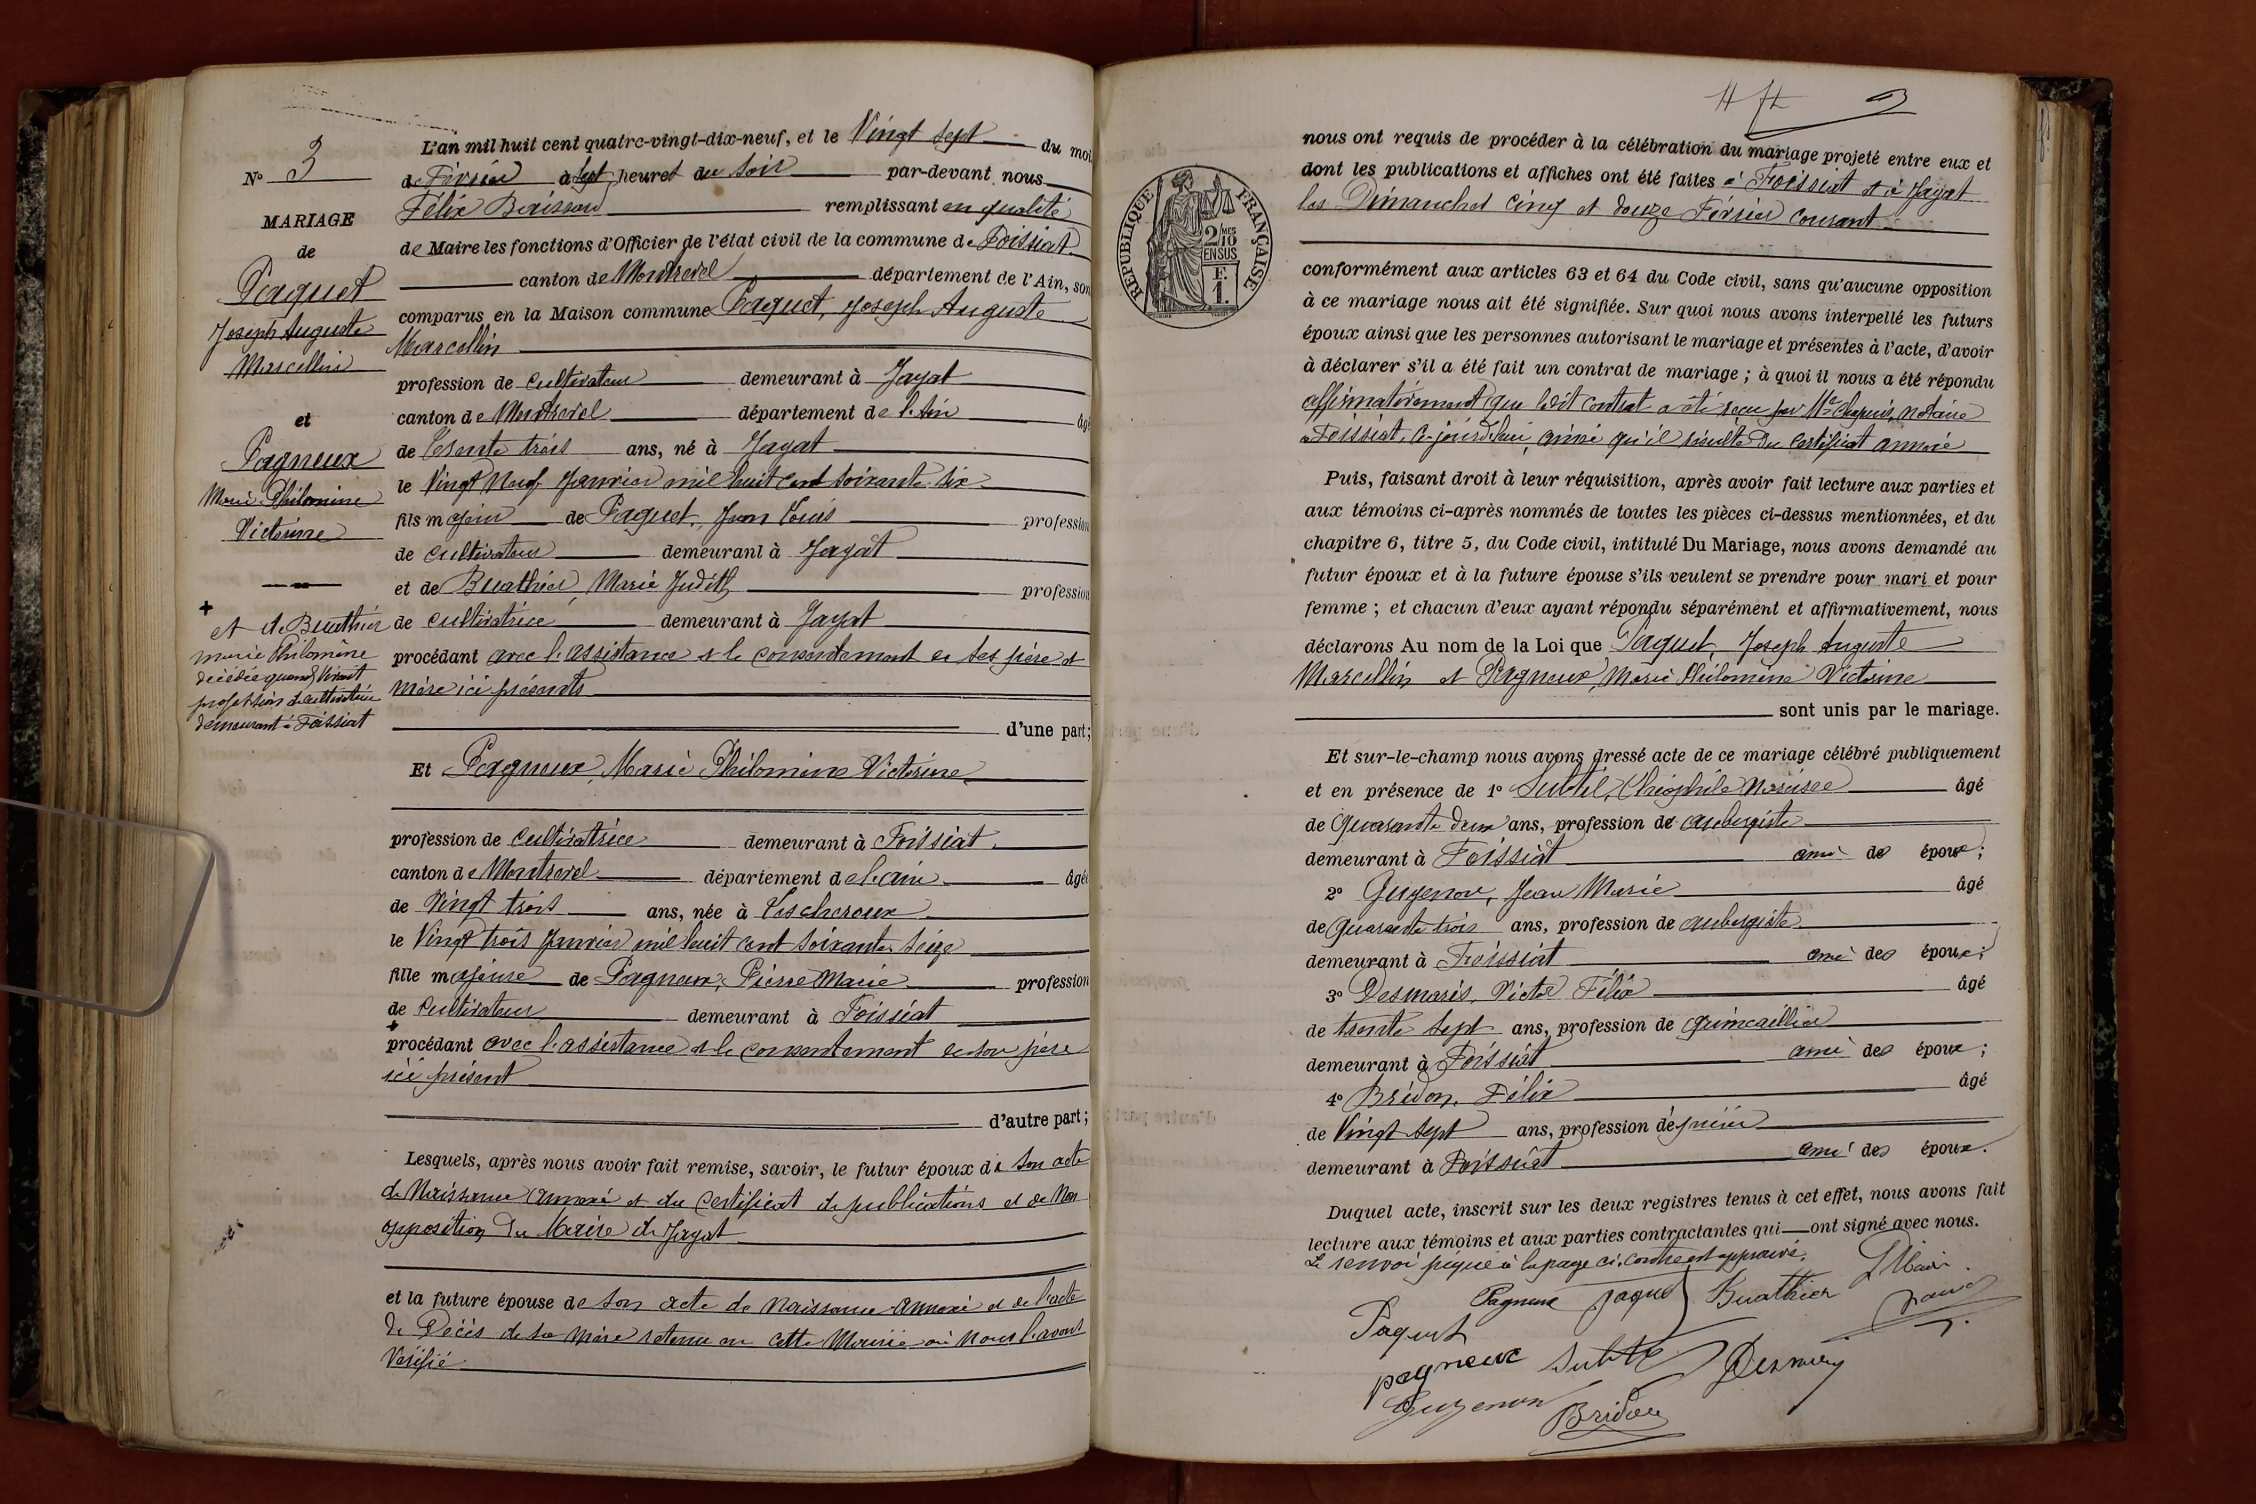 N° 3
MARIAGE
de
Paquet
Joseph Auguste
Marcellin
et
Pagneux
Marie Philomène
Victorine
+
et de Buathier
marie Philomène
décédée quand vivait
profession de cultivatrice
demeurant à Foissiat
L'an mil huit cent quatre-vingt-dix-neuf, et le Vingt sept du moi
de Février à Sept heures du soir par-devant nous
Félix remplissant en qualité
de Maire les fonctions d'Officier de l'état civil de la commune de Foissiat
canton de Montrevel département de l'Ain, son
comparus en la Maison commune Paquet, Joseph Auguste
Marcellin
profession de cultivateur demeurant à Jayat
canton de Montrevel département de l'Ain âgé
de trente trois ans, né à Jayat
le Vingt Neuf Janvier mil huit cent soixante six
fils majeur de Paquet, Jean Louis profession
de cultivateur demeurant à Jayat
et de Buathier, Marie Judith profession
de cultivatrice demeurant à Jayat
procédant avec l'assistance & le consentement de ses père et
mère ici présents
d'une part;
Et Pagneux, Marie Philomène Victorine
profession de cultivatrice demeurant à Foissiat
canton de Montrevel département de l'ain âgée
de Vingt trois ans, née à Lescheroux
le Vingt trois Janvier mil huit cent soixante seize
fille majeure de Pagneux, Pierre Marie profession
de cultivateur demeurant à Foissiat
+
procédant avec l'assistance & le consentement de son père
ici présent
d'autre part;
Lesquels, après nous avoir fait remise, savoir, le futur époux de son acte
de Naissance annexé et du certificat de publications et de Non
opposition du Maire de Jayat
et la future épouse de son acte de Naissance annexé et de l'acte
de Décès de sa mère retenu en cette Mairie où nous l'avons
Vérifié
3
RÉPUBLIQUE FRANÇAISE
2/10 MES
EN SUS
F.
1.
nous ont requis de procéder à la célébration du mariage projeté entre eux et
dont les publications et affiches ont été faites à Foissiat et à Jayat
les Dimanches cinq et douze Février courant
conformément aux articles 63 et 64 du Code civil, sans qu'aucune opposition
à ce mariage nous ait été signifiée. Sur quoi nous avons interpellé les futurs
époux ainsi que les personnes autorisant le mariage et présentes à l'acte, d'avoir
à déclarer s'il a été fait un contrat de mariage; à quoi il nous a été répondu
affirmativement que ledit contrat a été reçu par Me Chapuis, notaire
à Foissiat, ce jourd'hui, ainsi qu'il résulte du certificat annexé
Puis, faisant droit à leur réquisition, après avoir fait lecture aux parties et
aux témoins ci-après nommés de toutes les pièces ci-dessus mentionnées, et du
chapitre 6, titre 5, du Code civil, intitulé Du Mariage, nous avons demandé au
futur époux et à la future épouse s'ils veulent se prendre pour mari et pour
femme; et chacun d'eux ayant répondu séparément et affirmativement, nous
déclarons Au nom de la Loi que Paquet, Joseph Auguste
Marcellin et Pagneux, Marie Philomène Victorine
sont unis par le mariage.
Et sur-le-champ nous avons dressé acte de ce mariage célébré publiquement
et en présence de 1° Subtil, Théophile Narcisse âgé
de Quarante deux ans, profession de aubergiste
demeurant à Foissiat ami des époux;
2° Guyenon, Jean Marie âgé
de Quarante trois ans, profession de aubergiste
demeurant à Foissiat ami des époux;
3° Desmaris, Victor Félix âgé
de trente sept ans, profession de quincaillier
demeurant à Foissiat ami des époux;
4° Bridon, Félix âgé
de Vingt sept ans, profession d'épicier
demeurant à Foissiat ami des époux.
Duquel acte, inscrit sur les deux registres tenus à cet effet, nous avons fait
lecture aux témoins et aux parties contractantes qui ont signé avec nous.
Le renvoi piqué à la page ci-contre est approuvé.
Le Maire.
Pagneux Paquet Buathier
Paquet
pagneux Subtil
Guyenon Bridon